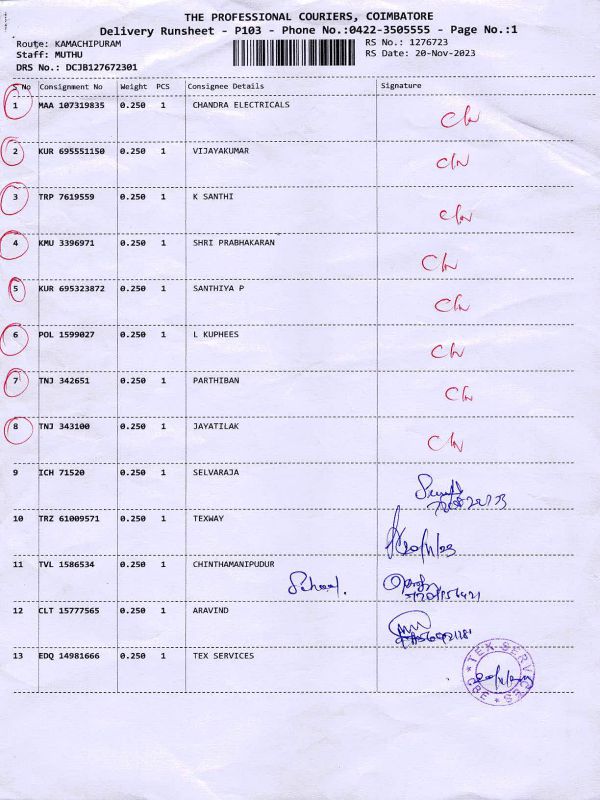 THE PROFESSIONAL COURIERS, COIMBATORE
Delivery Runsheet - P103 - Phone No.:0422-3505555 - Page No.:1
Route: KAMACHIPURAM RS No.: 1276723
Staff: MUTHU RS Date: 20-Nov-2023
DRS No.: DCJB127672301
S No Consignment No Weight PCS Consignee Details Signature
1 MAA 107319835 0.250 1 CHANDRA ELECTRICALS
2 KUR 695551150 0.250 1 VIJAYAKUMAR
3 TRP 7619559 0.250 1 K SANTHI
4 KMU 3396971 0.250 1 SHRI PRABHAKARAN
5 KUR 695323872 0.250 1 SANTHIYA P
6 POL 1599027 0.250 1 L KUPHEES
7 TNJ 342651 0.250 1 PARTHIBAN
8 TNJ 343100 0.250 1 JAYATILAK
9 ICH 71520 0.250 1 SELVARAJA
10 TRZ 61009571 0.250 1 TEXWAY 20/11/23
11 TVL 1586534 0.250 1 CHINTHAMANIPUDUR
School.
12 CLT 15777565 0.250 1 ARAVIND
13 EDQ 14981666 0.250 1 TEX SERVICES
* TEX SERVICES * CBE